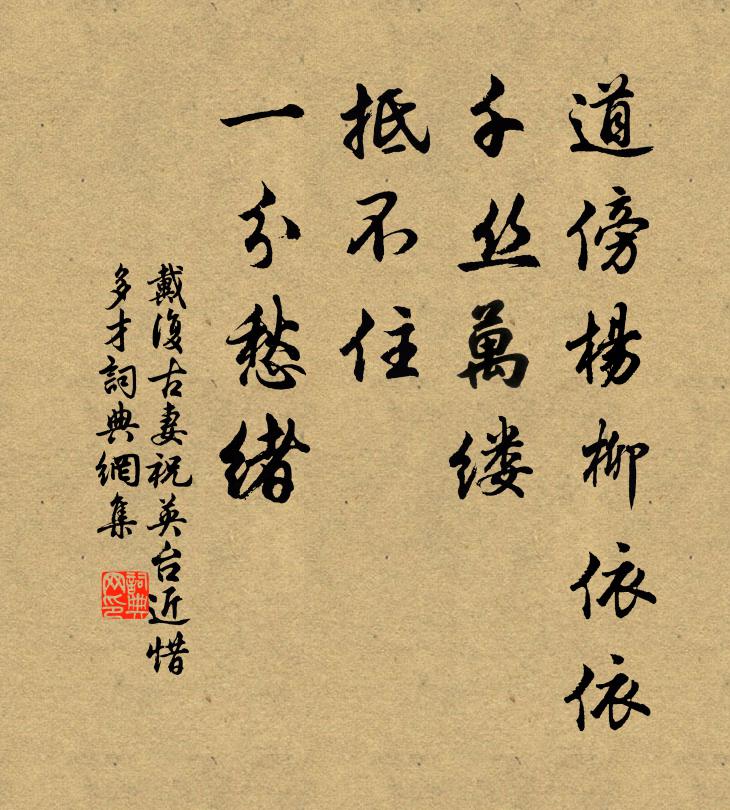 道傍楊柳依依
千丝萬缕
抵不住
一分愁緒
戴復古妻祝英台近惜
多才詞典網集
詞典
网印